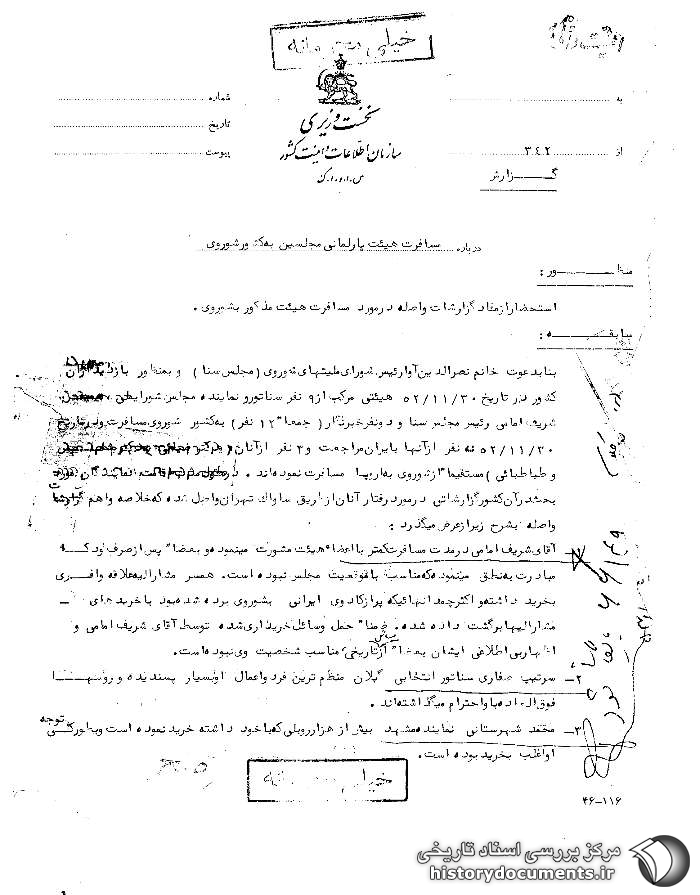 خیلی محرمانه
به
شماره
نخست وزیری
تاریخ
از ۳۴۲
سازمان اطلاعات و امنیت کشور
پیوست
س.ا.و.ا.ک
گـــزارش
درباره مسافرت هیئت پارلمانی مجلسین بکشور شوروی
منظـــور :
استحضار از مفاد گزارشات واصله در مورد مسافرت هیئت مذکور بشوروی .
سابقـــه :
بنا بدعوت خانم نصرالدین آوا رئیس شورای ملیتهای شوروی ( مجلس سنا ) و بمنظور بازدید از آن
کشور در تاریخ ۵۲/۱۱/۳۰ هیئتی مرکب از ۹ نفر سناتور و نماینده مجلس شورای
شریف امامی رئیس مجلس سنا و دو نفر خبرنگار ( جمعا" ۱۲ نفر ) به کشور شوروی مسافرت و در تاریخ
۵۲/۱۱/۳۰ نه نفر از آنها بایران مراجعت و ۳ نفر از آنان
و طباطبائی ) مستقیما" از شوروی به اروپا مسافرت نموده‌اند . در طول مدت اقامت نمایندگان مورد
بحث در آن کشور گزارشاتی در مورد رفتار آنان از طریق ساواک تهران واصل شده که خلاصه و اهم گزارشات
واصله بشرح زیر از عرض میگذرد :
آقای شریف امامی در مدت مسافرت کمتر با اعضا هیئت مشورت مینموده و بعضا" پس از صرف ودکا
مبادرت به نطق مینموده که مناسب با موقعیت مجلس نبوده است . همسر مشارالیه علاقه وافری
بخرید داشته و اکثر چمدانهائیکه پر از کادوی ایرانی بشوروی برده شده بود با خرید های
مشارالیها برگشت داده شده . ضمنا" حمل وسائل خریداری شده توسط آقای شریف امامی و
اظهار بی اطلاعی ایشان بعضا" از مسائل تاریخی مناسب شخصیت وی نبوده است .
۲ـ سرتیپ صفاری سناتور انتخابی گیلان منظم ترین فرد و اعمال او بسیار پسندیده و روسها
فوق العاده باو احترام میگذاشته‌اند .
۳ـ محمد شهرستانی نماینده مشهد بیش از هزار روبلی که با خود داشته خرید نموده است و بطور کلی توجه
او اغلب بخرید بوده است .
خیلی محرمانه
۴۶-۱۱۶
مرکز بررسی اسناد تاریخی
historydocuments.ir